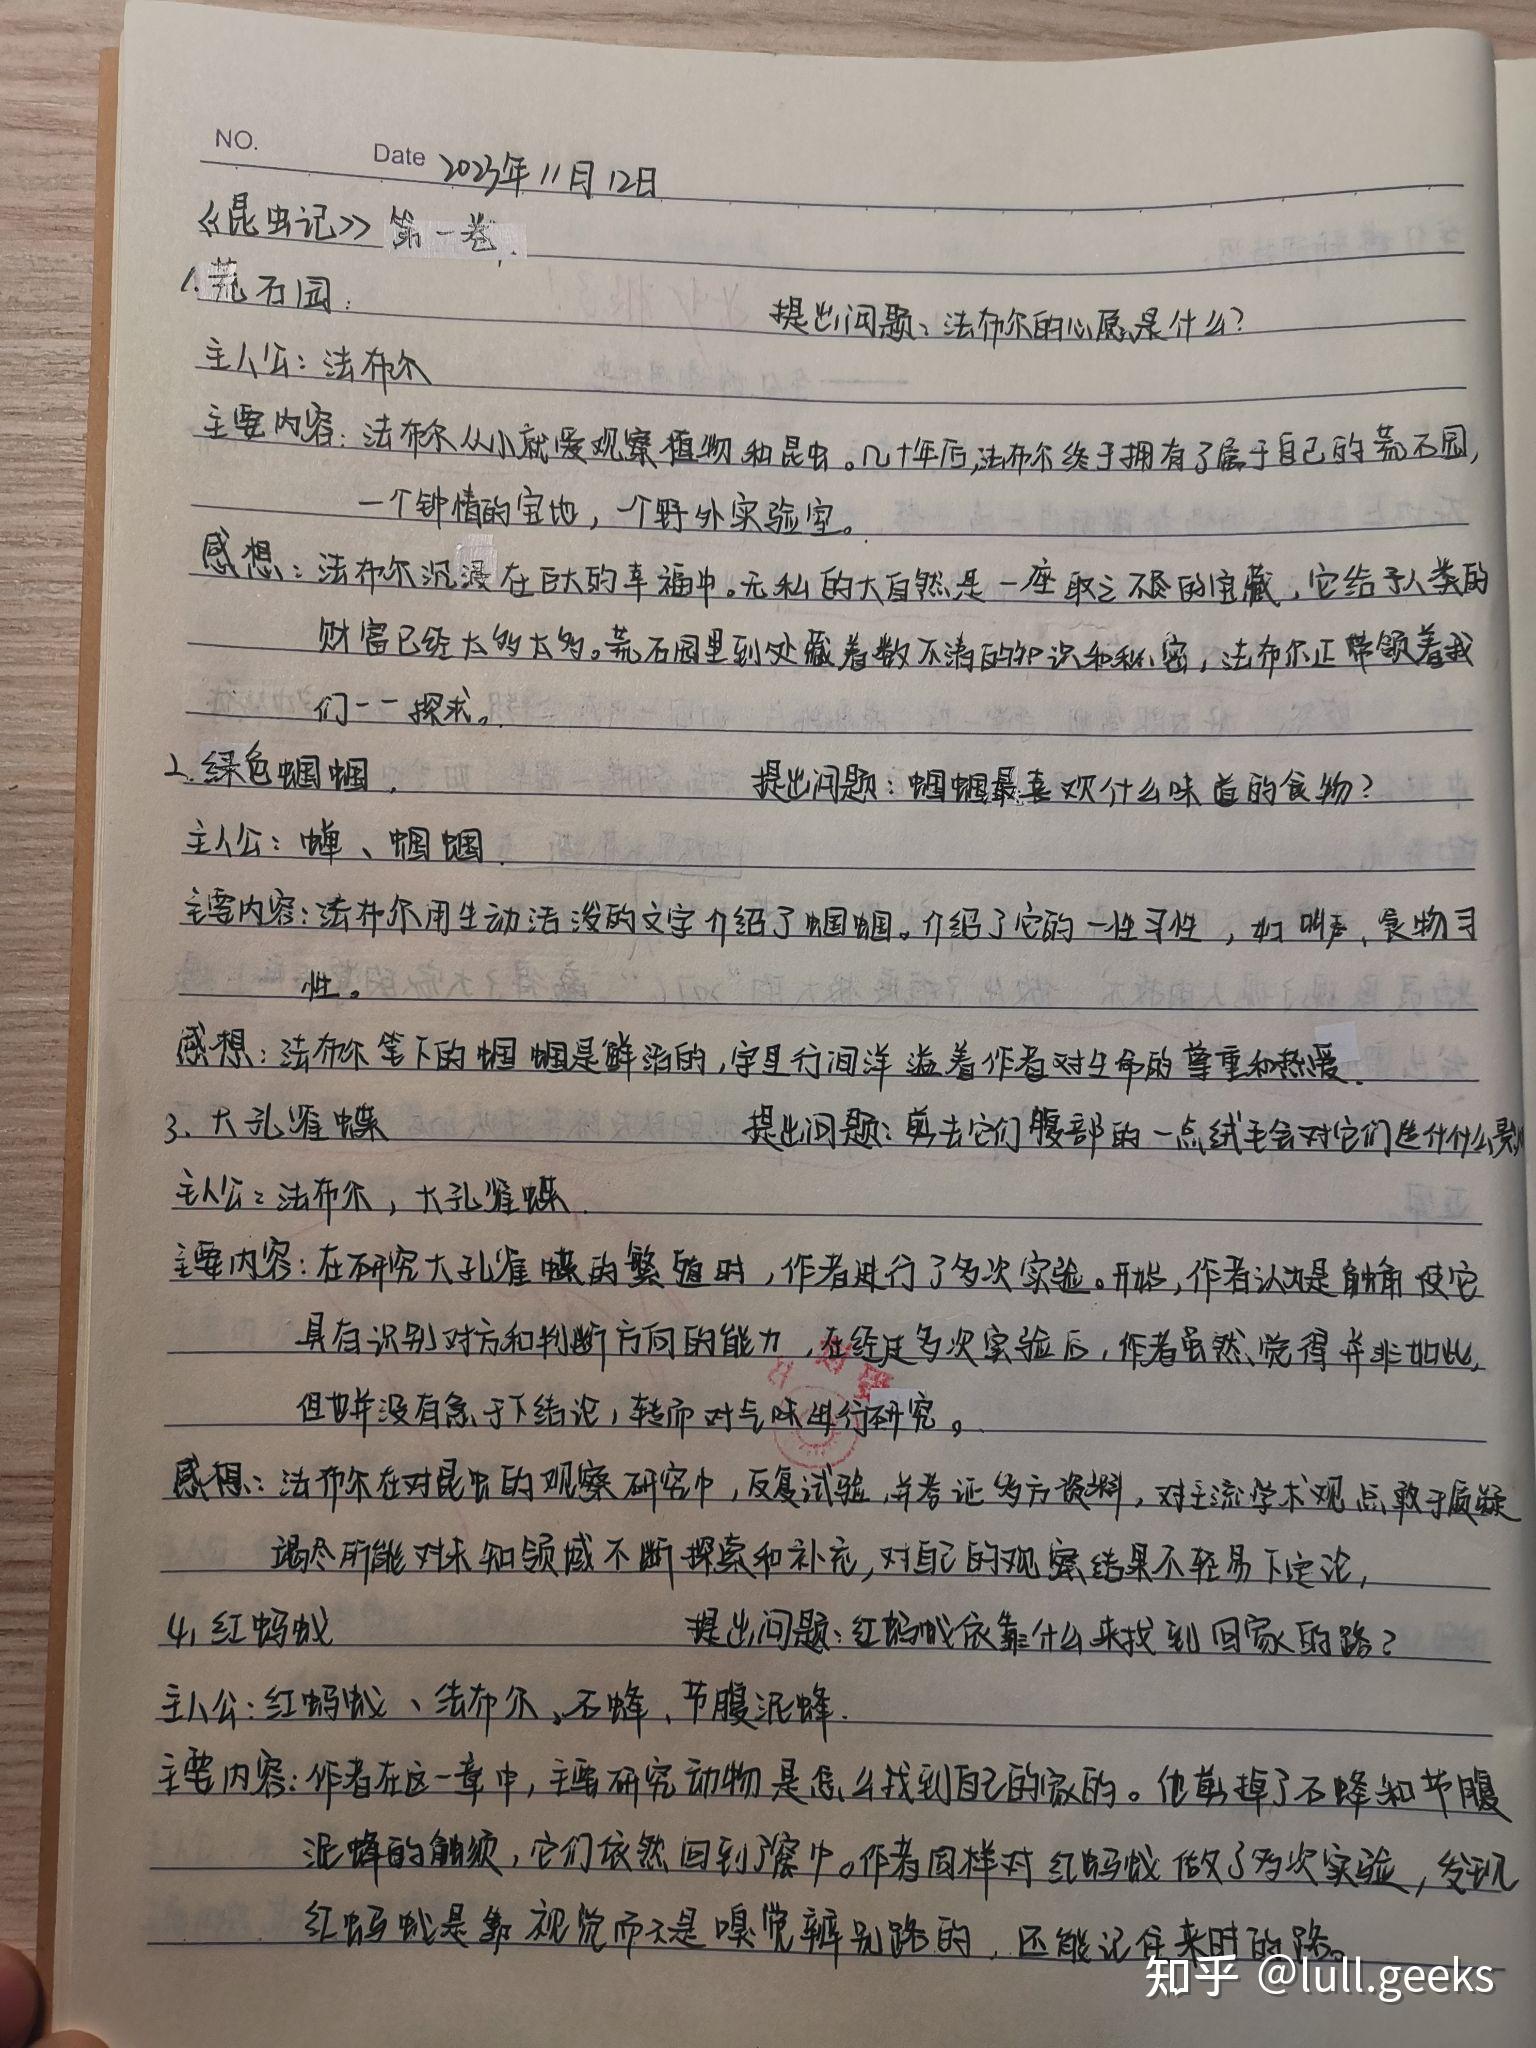 NO. Date 2023年11月12日
《昆虫记》第一卷.
1.荒石园: 提出问题:法布尔的心愿是什么?
主人公:法布尔
主要内容:法布尔从小就爱观察植物和昆虫。几十年后,法布尔终于拥有了属于自己的荒石园,
一个钟情的宝地,一个野外实验室。
感想:法布尔沉浸在巨大的幸福中。无私的大自然是一座取之不尽的宝藏,它给予人类的
财富已经太多太多。荒石园里到处藏着数不清的知识和秘密,法布尔正带领着我
们一一探求。
2.绿色蝈蝈. 提出问题:蝈蝈最喜欢什么味道的食物?
主人公:蝉、蝈蝈.
主要内容:法布尔用生动活泼的文字介绍了蝈蝈。介绍了它的一性习性,如叫声、食物习
性。
感想:法布尔笔下的蝈蝈是鲜活的,字里行间洋溢着作者对生命的尊重和热爱.
3.大孔雀蝶 提出问题:剪去它们腹部的一点绒毛会对它们造什什么影响
主人公:法布尔,大孔雀蝶.
主要内容:在研究大孔雀蝶的繁殖时,作者进行了多次实验。开始,作者认为是触角使它
具有识别对方和判断方向的能力,在经过多次实验后,作者虽然觉得并非如此,
但并没有急于下结论,转而对气味进行研究。
感想:法布尔在对昆虫的观察研究中,反复试验,并考证多方资料,对主流学术观点敢于质疑
竭尽所能对未知领域不断探索和补充,对自己的观察结果不轻易下定论,
4.红蚂蚁 提出问题:红蚂蚁依靠什么来找到回家的路?
主人公:红蚂蚁、法布尔、石蜂、节腹泥蜂.
主要内容:作者在这一章中,主要研究动物是怎么找到自己的家的。他剪掉了石蜂和节腹
泥蜂的触须,它们依然回到了窝中。作者同样对红蚂蚁做了多次实验,发现
红蚂蚁是靠视觉而不是嗅觉辨别路的,还能记住来时的路。
知乎 @lull.geeks